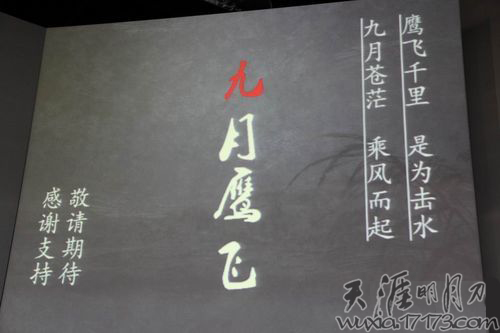 鹰飞千里 是为击水
九月苍茫 乘风而起
九月鹰飞
敬请期待
感谢支持
天涯明月刀
wuxia.17173.com